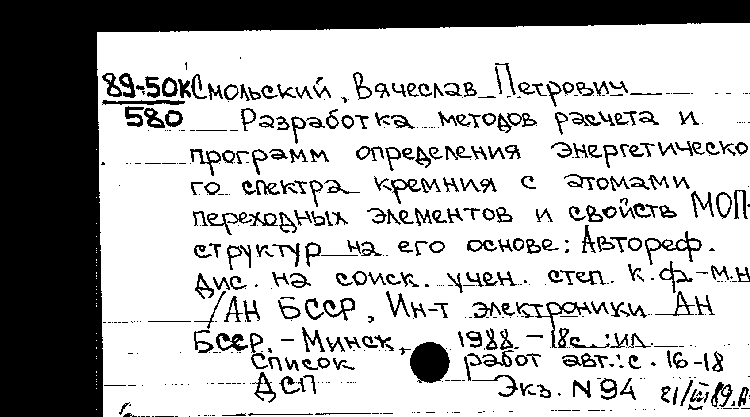 89-50к Смольский, Вячеслав Петрович
580 Разработка методов расчета и
программ определения энергетическо
го спектра кремния с атомами
переходных элементов и свойств МОП-
структур на его основе: Автореф.
дис. на соиск. учен. степ. к.ф.-м.н
/АН БССР, Ин-т электроники АН
БССР. - Минск, 1988 - 18с.: ил.
Список работ авт.: с. 16-18
ДСП Экз. N 94 21/III 89.